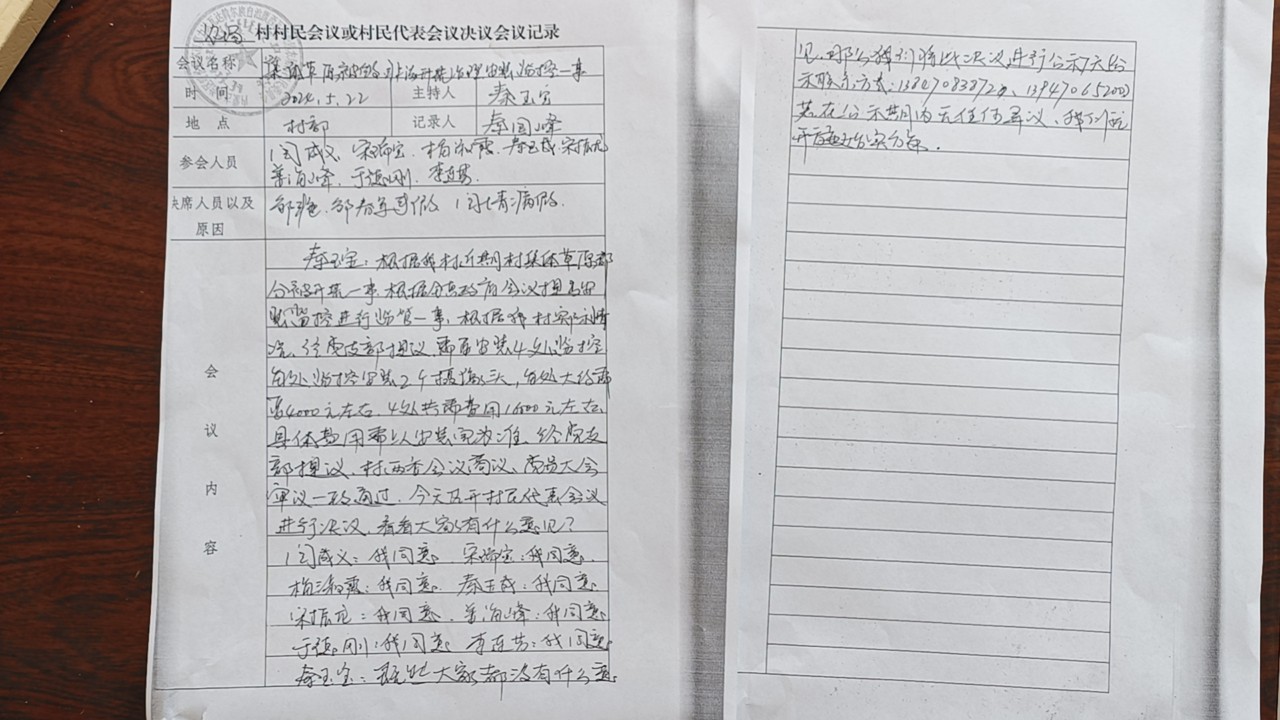 村村民会议或村民代表会议决议会议记录
会议名称
草原被 非法开荒治理安装监控一事
时 间 2024.5.22 主持人 秦玉宝
地 点 村部 记录人 秦国峰
参会人员 闫成义 宋 宝 杨 霞 秦玉成 宋振龙
峰 于德刚 李
缺席人员以及 原因 邹 邹 事假 闫 病假
会议内容
秦玉宝：根据我村近期村集体草原部
分被开荒一事 根据 政府会议提出安
装监控进行监管一事、根据我村实际情
况、经党支部提议 需要安装4处监控
每处监控安装2个摄像头，每处大约需
要4000元左右 4处共需费用16000元左右
具体费用需以安装完为准 经党支
部提议、村两委会议商议、党员大会
审议一致通过、今天召开村民代表会议
进行决议、看看大家有什么意见？
闫成义：我同意 宋 宝：我同意
杨 霞：我同意 秦玉成：我同意
宋振龙：我同意 峰：我同意
于德刚：我同意 李 ：我同意
秦玉宝：既然大家都没有什么意
见、那么我们将此决议进行公示7天公
示联系方式：
若在公示期内无任何异议、我们就
开 实